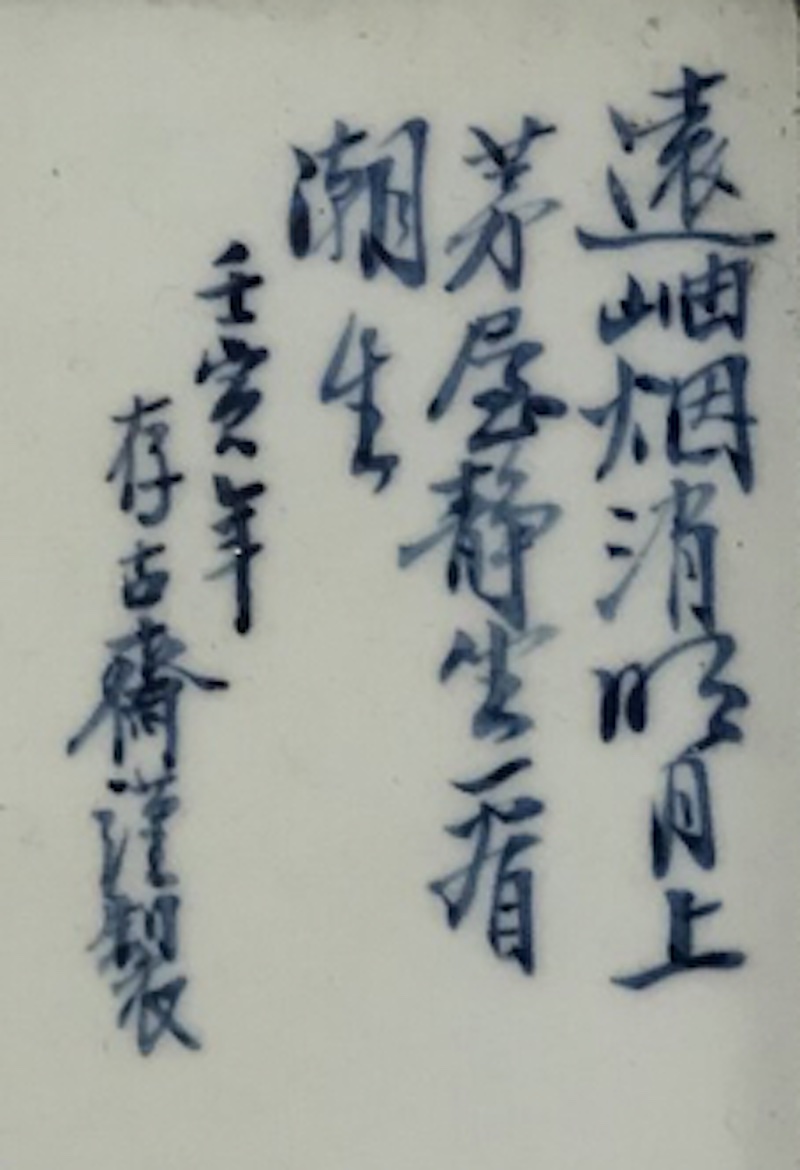 遠岫烟消明月上
茅屋静坐看
潮生
壬寅年
存古齋謹製